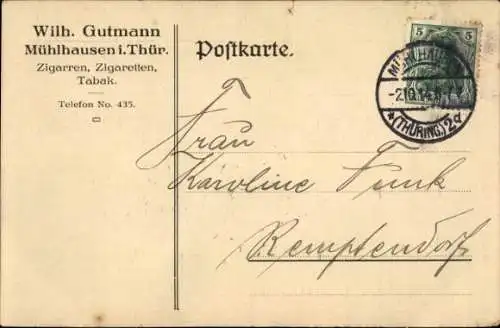 Wilh. Gutmann
Mühlhausen i. Thür.
Zigarren, Zigaretten,
Tabak.
Telefon No. 435.
Postkarte.
5 5
MÜHLHAUSEN
-2.10.14.
*(THÜRING.)2d
Frau
Karoline Funk
Remptendorf